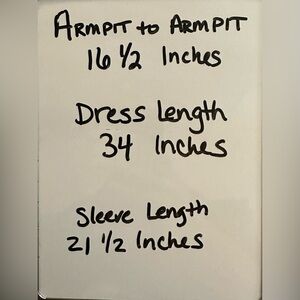 Armpit to Armpit
16 1/2 Inches
Dress Length
34 Inches
Sleeve Length
21 1/2 Inches